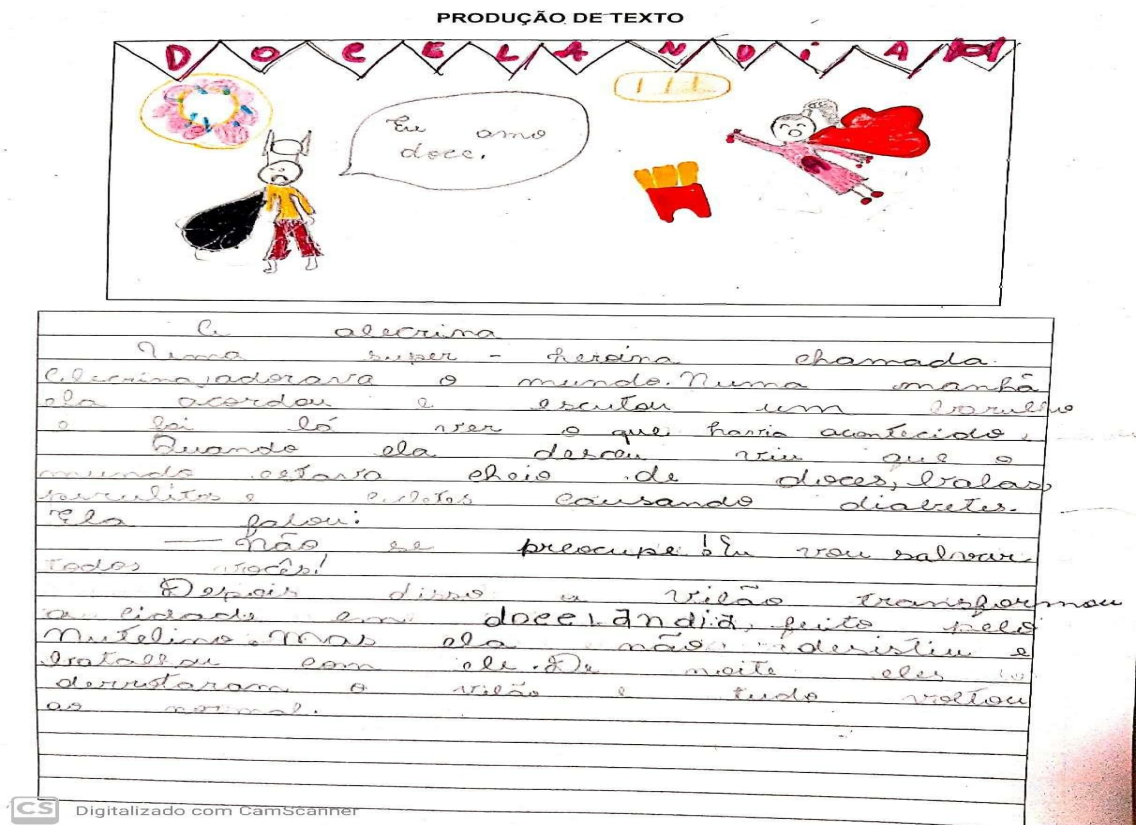 PRODUÇÃO DE TEXTO
DOCELANDIA
Eu amo
doce.
A alecrina
Uma super - heroína chamada
Alecrina, adorava o mundo. Numa manhã
ela acordou e escutou um barulho
e foi lá ver o que havia acontecido,
Quando ela desceu viu que o
mundo estava cheio de doces, balas,
pirulitos e causando diabetes.
Ela falou:
— Não se preocupe! Eu vou salvar
todos vocês!
Depois disso o vilão transformou
a cidade em docelândia, feito pelo
Nutelino. Mas ela não desistiu e
batalhou com ele. De noite eles
derrotaram o vilão e tudo voltou
ao normal.
CS Digitalizado com CamScanner